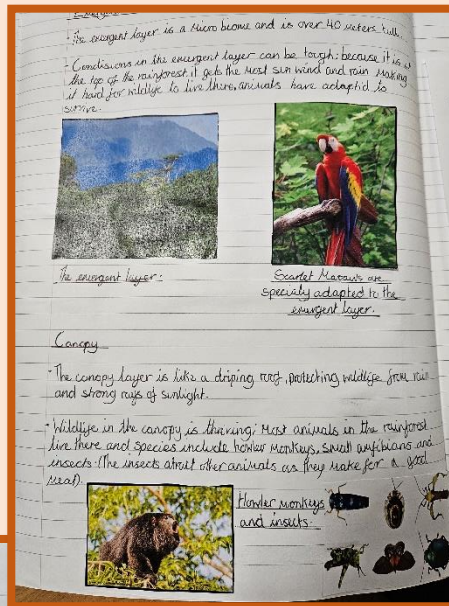 · The emergent layer is a Micro biome and is over 40 meters tall.
· Condisions in the emergent layer can be tough: because it is at
the top of the rainforest it gets the most sun wind and rain making
it hard for wildlife to live there, animals have adaptid to
survive.
The emergent layer.
Scarlet Macaws are
specialy adapted to the
emergent layer.
Canopy
· The canopy layer is like a driping roof, protecting wildlife from rain
and strong rays of sunlight.
· Wildlife in the canopy is thriving; Most animals in the rainforest
live there and species include howler monkeys, small amfibians and
insects. (The insects atract other animals as they make for a good
meal).
Howler monkeys
and insects.